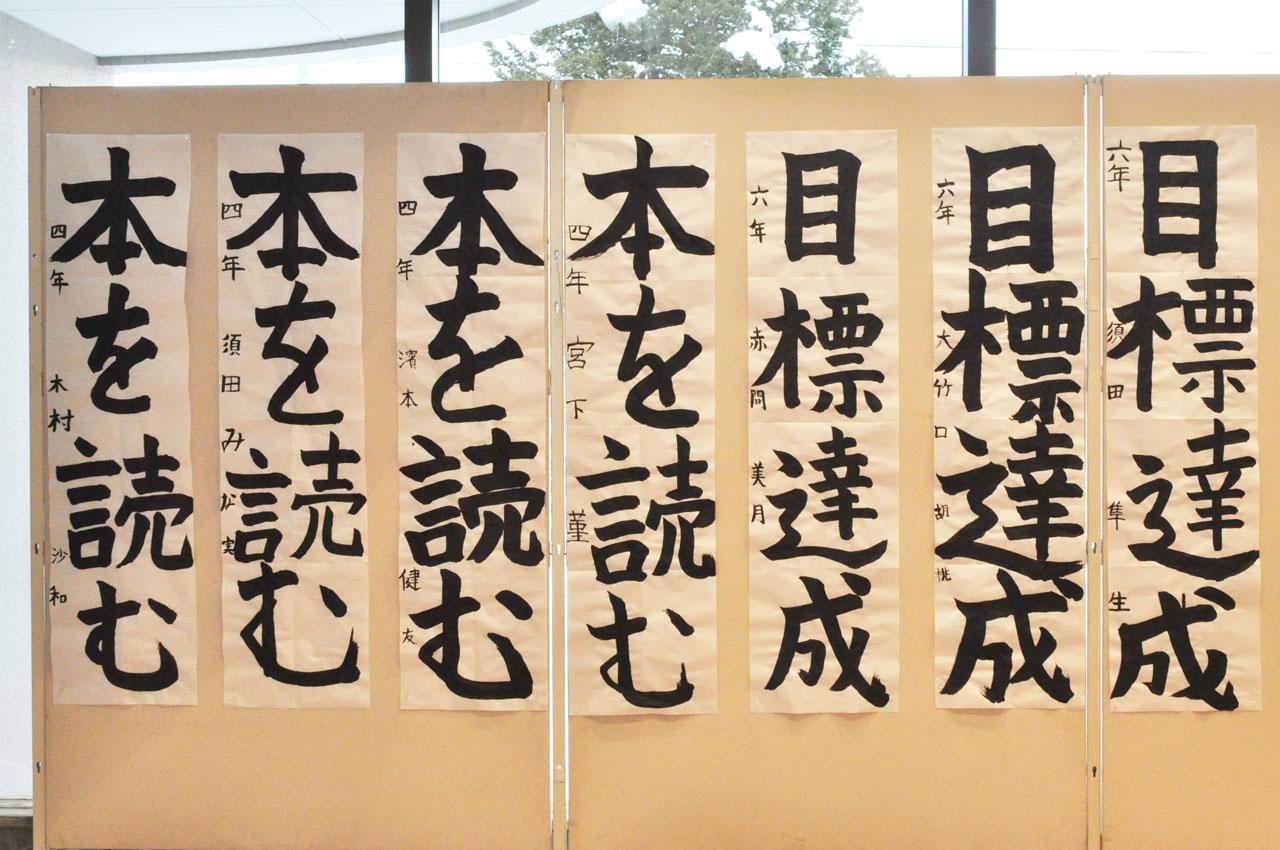 本を読む
四年 木村 沙和
本を読む
四年 須田 み松実
本を読む
四年 濱本 健友
本を読む
四年 宮下 菫
目標達成
六年 赤間 美月
目標達成
六年 大竹口 胡桃
目標達成
六年 須田 隼生